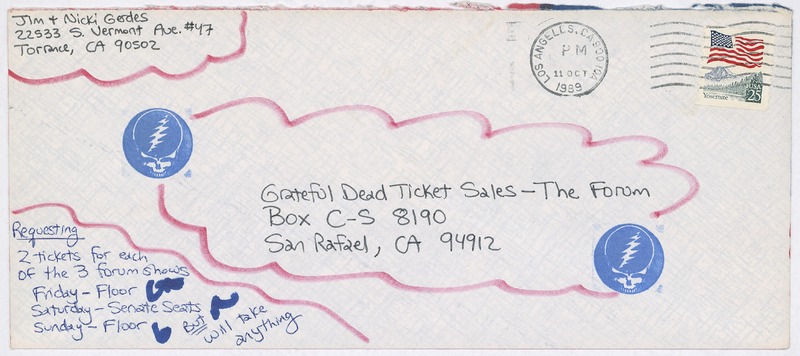 Jim + Nicki Gerdes
22533 S. Vermont Ave. #47
Torrance, CA 90502
LOS ANGELES, CA 900 10A
PM
11 OCT
1989
Yosemite
USA
25
Grateful Dead Ticket Sales – The Forum
Box C-S 8190
San Rafael, CA 94912
Requesting
2 tickets for each
of the 3 forum shows
Friday – Floor
Saturday – Senate Seats
Sunday – Floor
But will take
anything